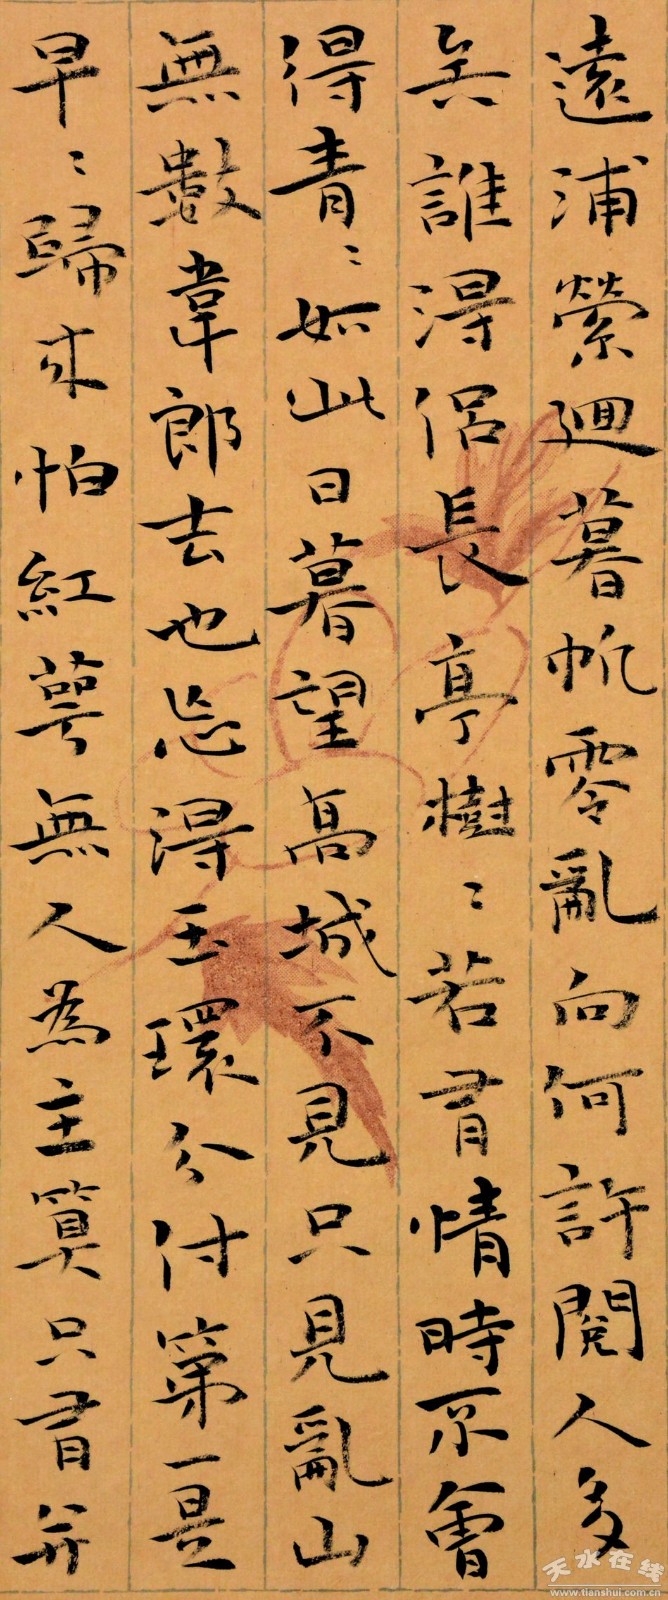 遠浦縈迴暮帆零亂向何許閱人多
矣誰得佀長亭樹〻若有情時不會
得青〻如此日暮望高城不見只見亂山
無數韋郎去也忘得玉環分付第一是
早〻歸來怕紅萼無人為主算只有并
天水在线
www.tianshui.com.cn